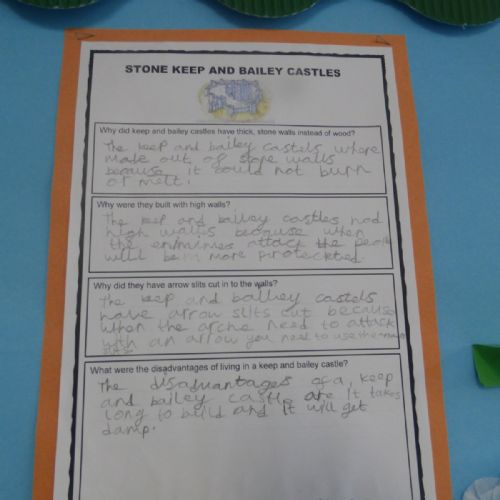 STONE KEEP AND BAILEY CASTLES
Why did keep and bailey castles have thick, stone walls instead of wood?
The keep and bailey castels where
make out of stone walls
because it could not burn
or melt.
Why were they built with high walls?
The keep and bailey castles had
high walls because when
the attack the people
will be more
Why did they have arrow slits cut in to the walls?
The keep and bailey castels
have arrow slits cut because
when the need to attack
with an arrow you need to use the
What were the disadvantages of living in a keep and bailey castle?
The disadvantages of a keep
and bailey castle are it takes
long to build and it will get
damp.